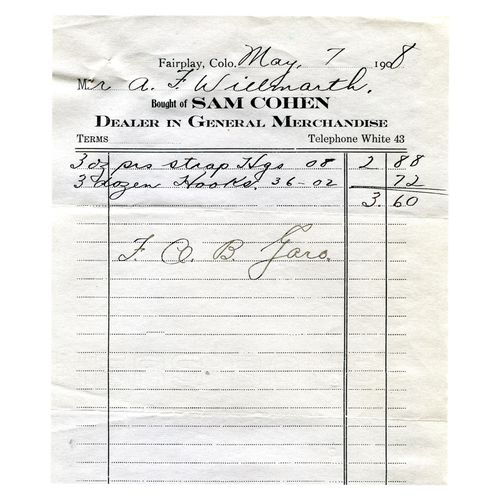 Fairplay, Colo. May, 7 1908
Mr A. F. Willmarth.
Bought of SAM COHEN
DEALER IN GENERAL MERCHANDISE
TERMS Telephone White 43
3 oz prs strap Hgs 08 2 88
3 dozen Hooks. 36-02 72
3. 60
F. O. B. Garo.